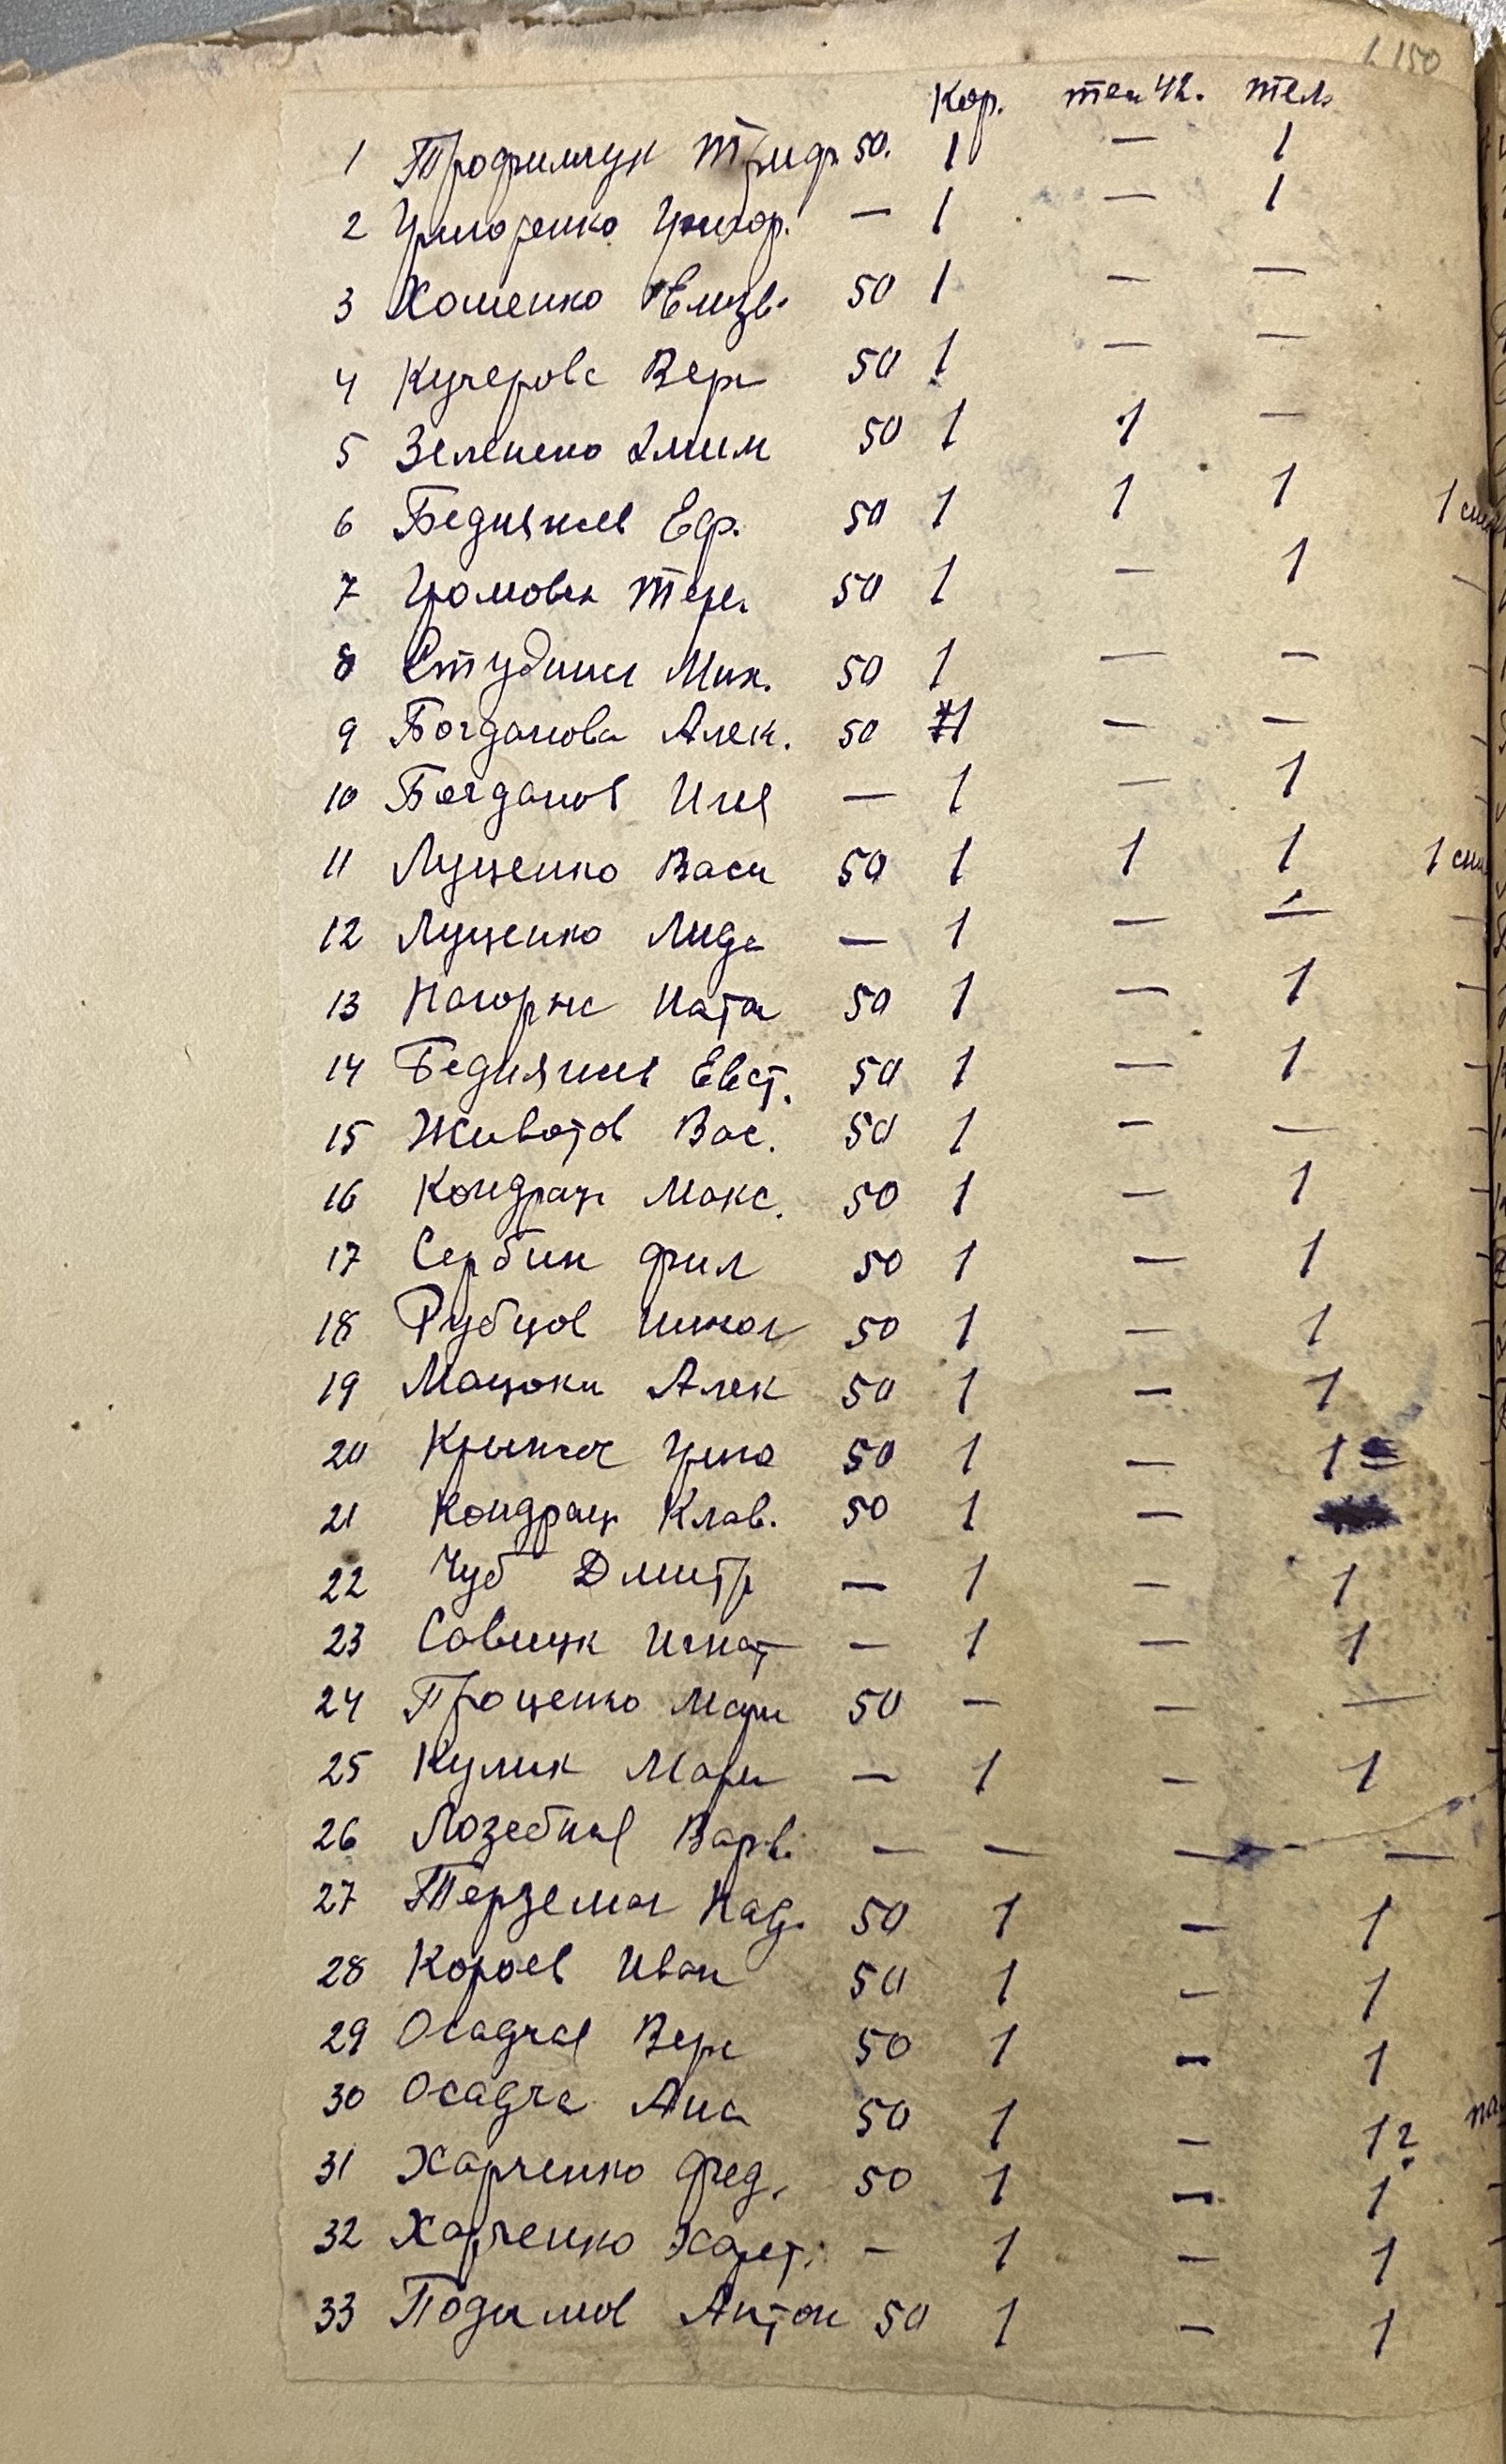 150
Кор. тел 42. тел
1 Трофимчук Триф. 50. 1 — 1
2 Григоренко Григор. — 1 — 1
3 Хоменко Елизв. 50 1 — —
4 Кучерова Вера 50 1 — —
5 Зеленско 50 1 1 —
6 Бедняков Еф. 50 1 1 1 1
7 Громовая 50 1 — 1
8 Студина Мих. 50 1 — —
9 Богданова Алек. 50 1 — —
10 Богданов Илья — 1 — 1
11 Луценко Васи 50 1 1 1 1
12 Луценко Лида — 1 — —
13 Нагорна Ната 50 1 — 1
14 Бедняков Евст. 50 1 — 1
15 Животов Вас. 50 1 — —
16 Кондрац Макс. 50 1 — 1
17 Сербин Фил 50 1 — 1
18 Рубцов Никол 50 1 — 1
19 Мацоки Алек 50 1 — 1
20 50 1 — 1
21 Кондрац Клав. 50 1 —
22 Чуб Дмитр — 1 — 1
23 Савицк Игнат — 1 — 1
24 Проценко Мари 50 — — —
25 Кулик Мари — 1 — 1
26 Лозебная Варв. — — — —
27 Терземан Над. 50 1 — 1
28 Короев Иван 50 1 — 1
29 Осадчая Вера 50 1 — 1
30 Осадча Ана 50 1 — 1?
31 Харченко Фед. 50 1 — 1
32 Харченко Харет. — 1 — 1
33 Подимов Антон 50 1 — 1